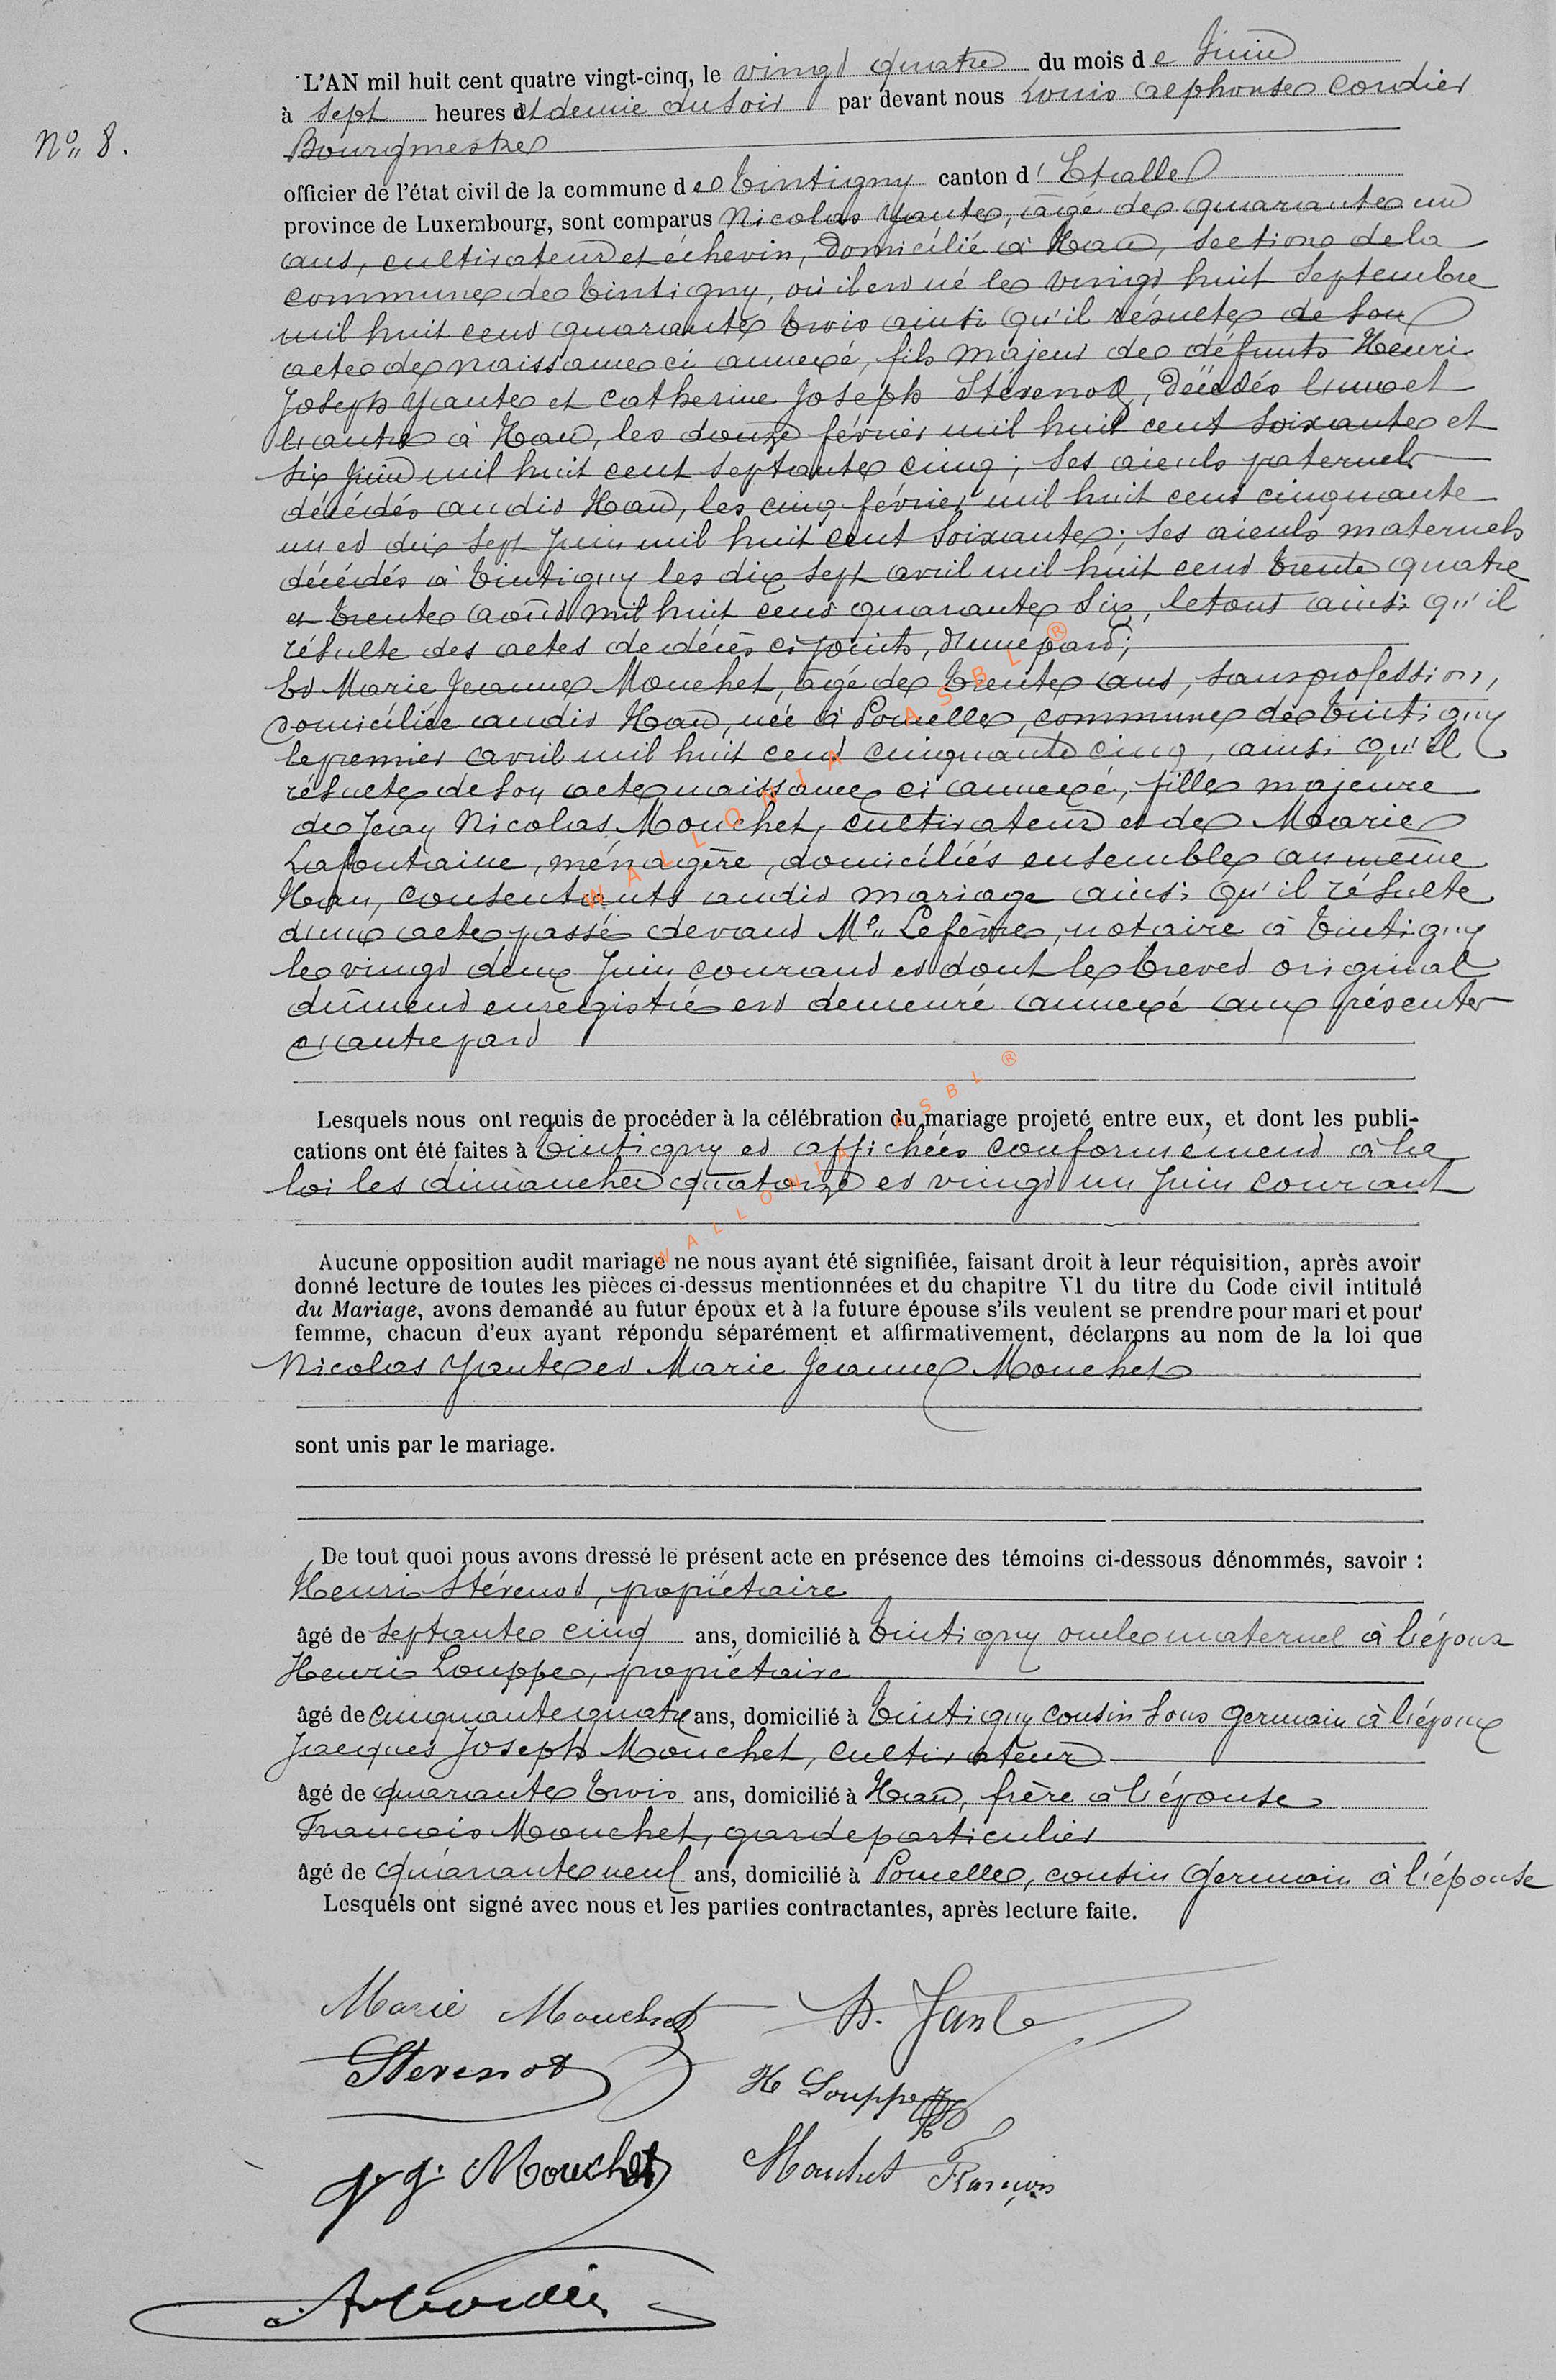 L'AN mil huit cent quatre vingt-cinq, le vingt quatre du mois de Juin
à sept heures et demie du soir par devant nous Louis Alphonse Cordier
N° 8.
Bourgmestre
officier de l'état civil de la commune de Tintigny canton d'Etalle
province de Luxembourg, sont comparus Nicolas Yante, âgé de quarante un
ans, cultivateur et échevin, domicilié à Han, section de la
commune de Tintigny, où il est né le vingt huit Septembre
mil huit cent quarante trois ainsi qu'il résulte de son
acte de naissance ci annexé, fils majeur de défunts Henri
Joseph Yante et Catherine Joseph Stévenot, décédés l'un et
l'autre à Han, les douze février mil huit cent soixante et
six Juin mil huit cent septante cinq; ses aïeuls paternels
décédés audit Han, les cinq février mil huit cent cinquante
un et dix sept Juin mil huit cent soixante; ses aïeuls maternels
décédés à Tintigny les dix sept avril mil huit cent trente quatre
et trente août mil huit cent quarante six, le tout ainsi qu'il
résulte des actes de décès ci joints, d'une part;
Et Marie Jeanne Mouchet, âgé de trente ans, sans profession,
domiciliée audit Han, née à Poncelle, commune de Tintigny
le premier avril mil huit cent cinquante cinq, ainsi qu'il
résulte de son acte naissance ci annexé, fille majeure
de Jean Nicolas Mouchet, cultivateur et de Marie
Lafontaine, ménagère, domiciliés ensemble au même
Han, consentants audit mariage ainsi qu'il résulte
d'une acte passé devant Me Lefèvre, notaire à Tintigny
le vingt deux Juin courant et dont le brevet original
dûment enregistré est demeuré annexé aux présentes
d'autre part
Lesquels nous ont requis de procéder à la célébration du mariage projeté entre eux, et dont les publi-
cations ont été faites à Tintigny et affichées conformément à la
loi les dimanches quatorze et vingt un Juin courant
Aucune opposition audit mariage ne nous ayant été signifiée, faisant droit à leur réquisition, après avoir
donné lecture de toutes les pièces ci-dessus mentionnées et du chapitre VI du titre du Code civil intitulé
du Mariage, avons demandé au futur époux et à la future épouse s'ils veulent se prendre pour mari et pour
femme, chacun d'eux ayant répondu séparément et affirmativement, déclarons au nom de la loi que
Nicolas Yante et Marie Jeanne Mouchet
sont unis par le mariage.
De tout quoi nous avons dressé le présent acte en présence des témoins ci-dessous dénommés, savoir :
Henri Stévenot, propiétaire
âgé de septante cinq ans, domicilié à Tintigny oncle maternel à l'époux
Henri Louppe, propiétaire
âgé de cinquante quatre ans, domicilié à Tintigny cousin sous germain à l'époux
Jacques Joseph Mouchet, cultivateur
âgé de quarante trois ans, domicilié à Han, frère à l'épouse
François Mouchet, garde particulier
âgé de quarante neuf ans, domicilié à Poncelle, cousin germain à l'épouse
Lesquels ont signé avec nous et les parties contractantes, après lecture faite.
Marie Mouchet N. Yante
Stevenot H Louppe
J. J. Mouchet Mouchet François
A Cordier
WALLONIA ASBL ®
WALLONIA ASBL ®